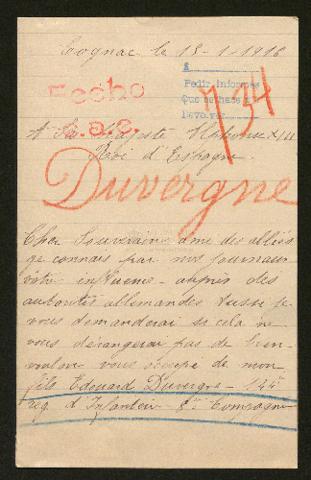 Cognac le 13-1-1916
Fecho
e.a.c.
Pedir informes
Que se hace
Devo
734
A Sa Majesté Alphonse XIII
Roi d'Espagne
Duvergne
Cher Souverain ami des alliés
je connais par nos journaux
votre influence auprès des
autorités allemandes Aussi je
vous demanderai si cela ne
vous dérangerai pas de bien
vouloir vous occupé de mon
fils Edouard Duvergne - 144e
reg d'Infanterie 8e Compagnie